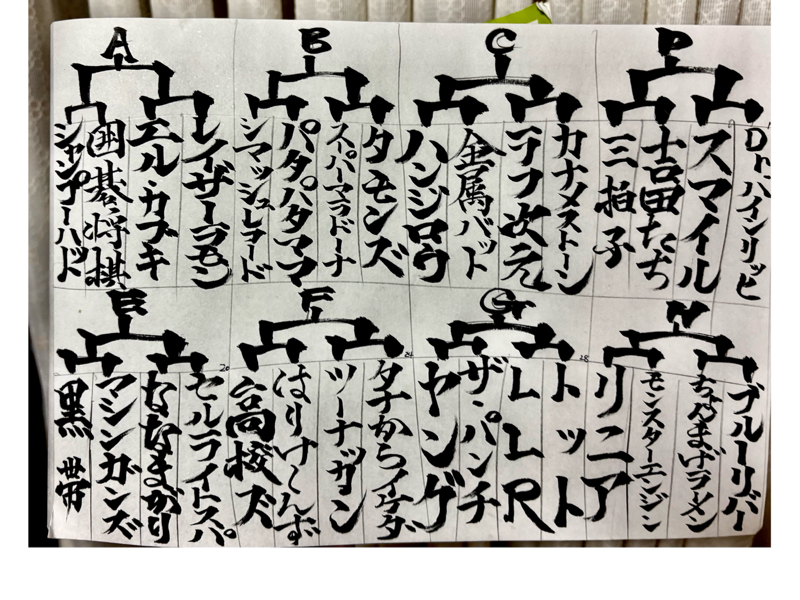 A
シャンプーハット
囲碁将棋
エル・カブキ
レイザーラモン
B
シマッシュレコード
パタパタママ
スーパーマラドーナ
タモンズ
C
ハンジロウ
金属バット
ラフ次元
カナメストーン
D
三拍子
吉田たち
スマイル
Dr.ハインリッヒ
E
黒帯
マシンガンズ
ななまがり
20
セルライトスパ
F
高校ズ
はりけ〜んず
ツーナッカン
24
タナからイケダ
G
ヤング
ザ・パンチ
LLR
28
トット
H
リニア
モンスターエンジン
ちょんまげラーメン
ブルーリバー